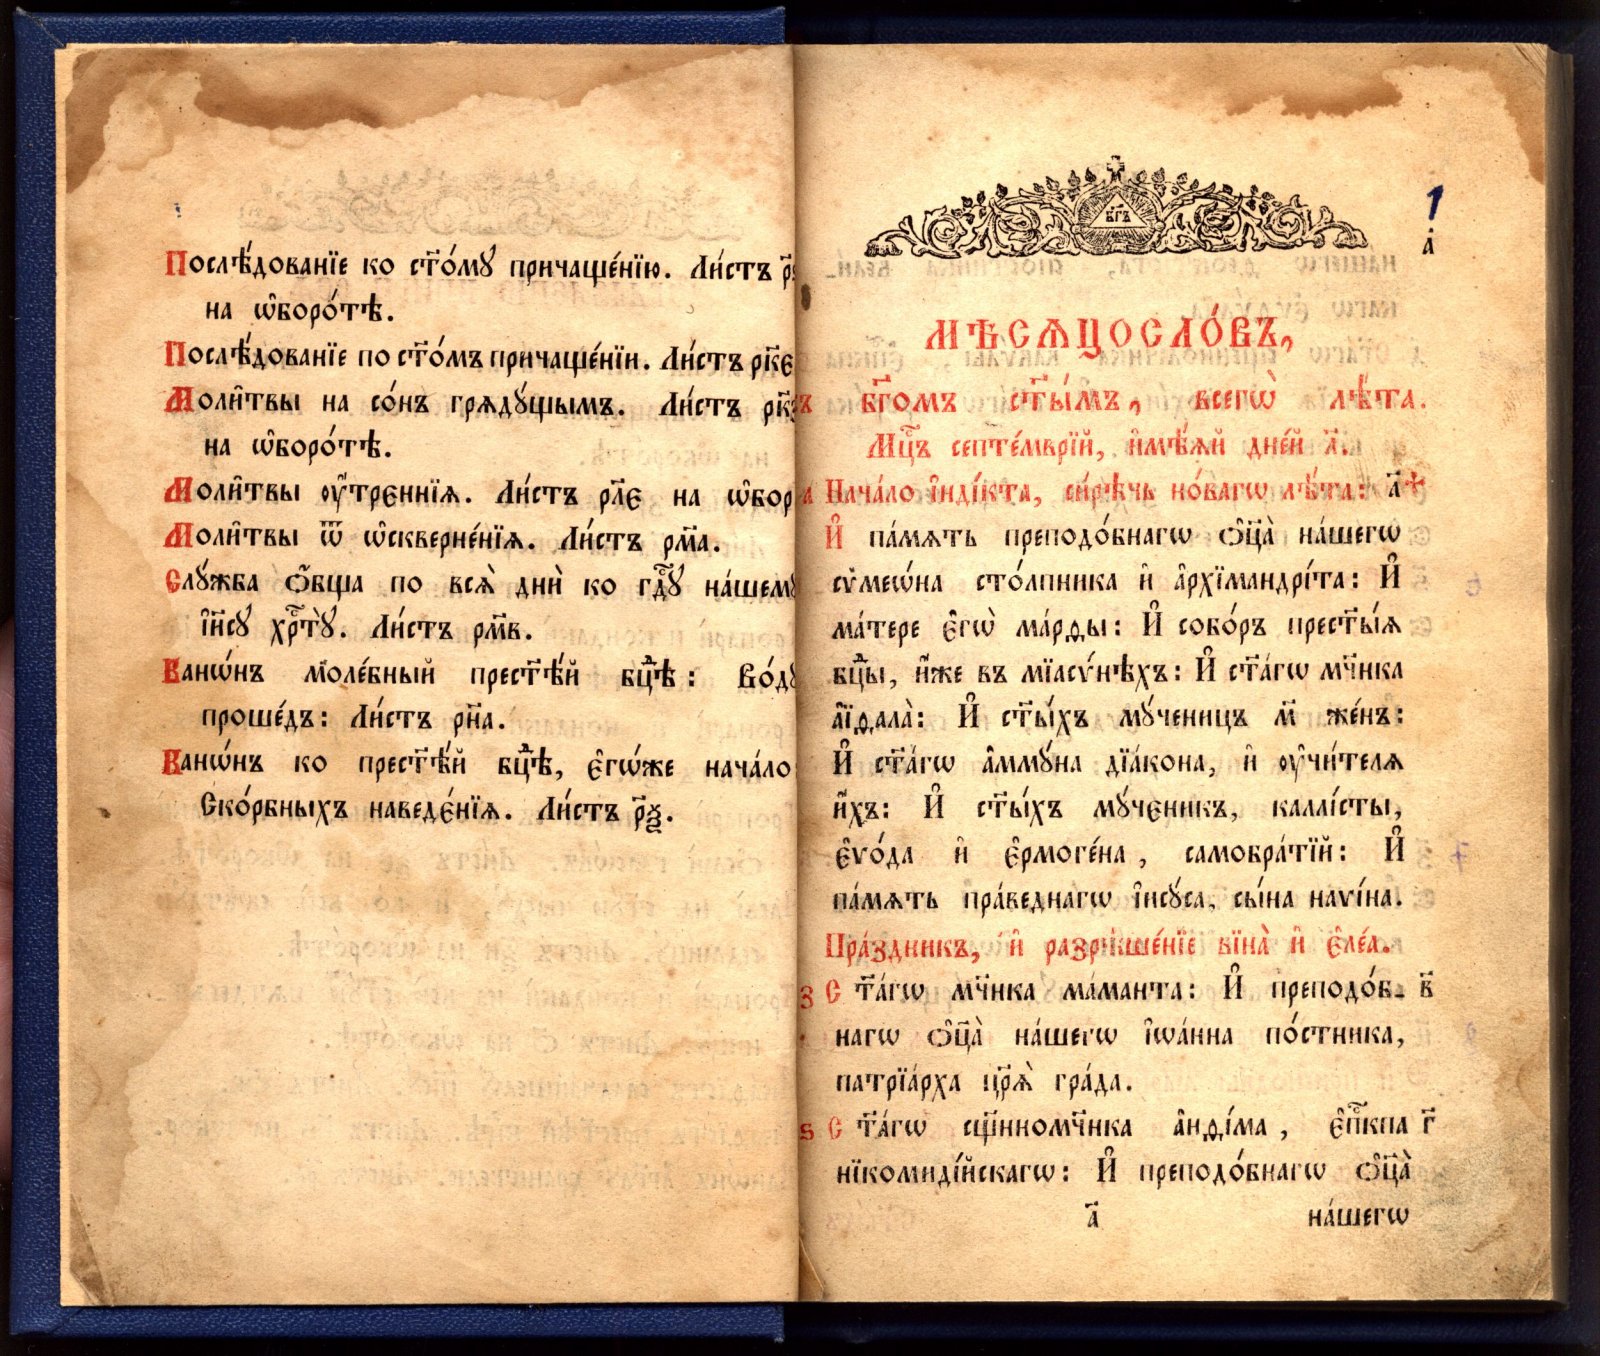 Послѣ́дованїе ко ст҃о́мꙋ причаще́нїю. Ли́стъ
на ѡ҆боро́тѣ.
Послѣ́дованїе по ст҃о́мъ причаще́нїи. Ли́стъ рк҃є
Моли̑твы на со́нъ грядꙋ́щымъ. Ли́стъ рк҃з
на ѡ҆боро́тѣ.
Моли̑твы ᲂу҆́трєннїѧ. Ли́стъ рл҃є на ѡ҆бор
Моли̑твы ѿ ѡ҆скверне́нїѧ. Ли́стъ рм҃а.
Слꙋ́жба ѻ҆́бща по всѧ̀ дни̑ ко гдⷭ҇ꙋ на́шемꙋ
і҆и҃сꙋ хрⷭ҇тꙋ̀. Ли́стъ рм҃в.
Канѡ́нъ моле́бный прест҃ѣ́й бцⷣѣ: Во́дꙋ
проше́дъ: Ли́стъ рн҃а.
Канѡ́нъ ко прест҃ѣ́й бцⷣѣ, є҆гѡ́же нача́ло
Ско́рбныхъ наведе́нїѧ. Ли́стъ рѯ҃.
бг҃ъ
1
а҃
МѢСѦЦОСЛО́ВЪ,
бг҃омъ ст҃ы́мъ, всегѡ̀ лѣ́та.
Мцⷭ҇ъ септе́мврїй, и҆мѣ́ѧй дне́й л҃.
Нача́ло і҆ндı́кта, си́рѣчь но́вагѡ лѣ́та: а҃
И҆ па́мѧть преподо́бнагѡ ѻ҆ц҃а̀ на́шегѡ
сѷмеѡ́на сто́лпника и҆ а҆рхїмандрı́та: И҆
ма́тере є҆гѡ̀ ма́рѳы: И҆ собо́ръ прест҃ы́ѧ
бцⷣы, ꙗ҆́же въ мїасѵ́нѣхъ: И҆ ст҃а́гѡ мч҃нка
а҆їѳала̀: И҆ ст҃ы́хъ мꙋ́ченицъ м҃ же́нъ:
И҆ ст҃а́гѡ а҆ммꙋ́на дїа́кона, и҆ ᲂу҆чи́телѧ
и҆́хъ: И҆ ст҃ы́хъ мꙋ́ченикъ, каллı́сты,
є҆ѵо́да и҆ є҆рмоге́на, самобра́тїй: И҆
па́мѧть пра́веднагѡ і҆исꙋ́са, сы́на наѵı́на.
Пра́здникъ, и҆ разрѣше́нїе вїна̀ и҆ є҆ле́а.
Ст҃а́гѡ мч҃нка ма́манта: И҆ преподо́б- в҃
нагѡ ѻ҆ц҃а̀ на́шегѡ і҆ѡа́нна по́стника,
патрїа́рха цр҃ѧ̀ гра́да.
Ст҃а́гѡ сщ҃нномч҃нка а҆нѳı́ма, є҆пⷭ҇кпа г҃
нїкомидı́йскагѡ: И҆ преподо́бнагѡ ѻ҆ц҃а̀
а҃ на́шегѡ